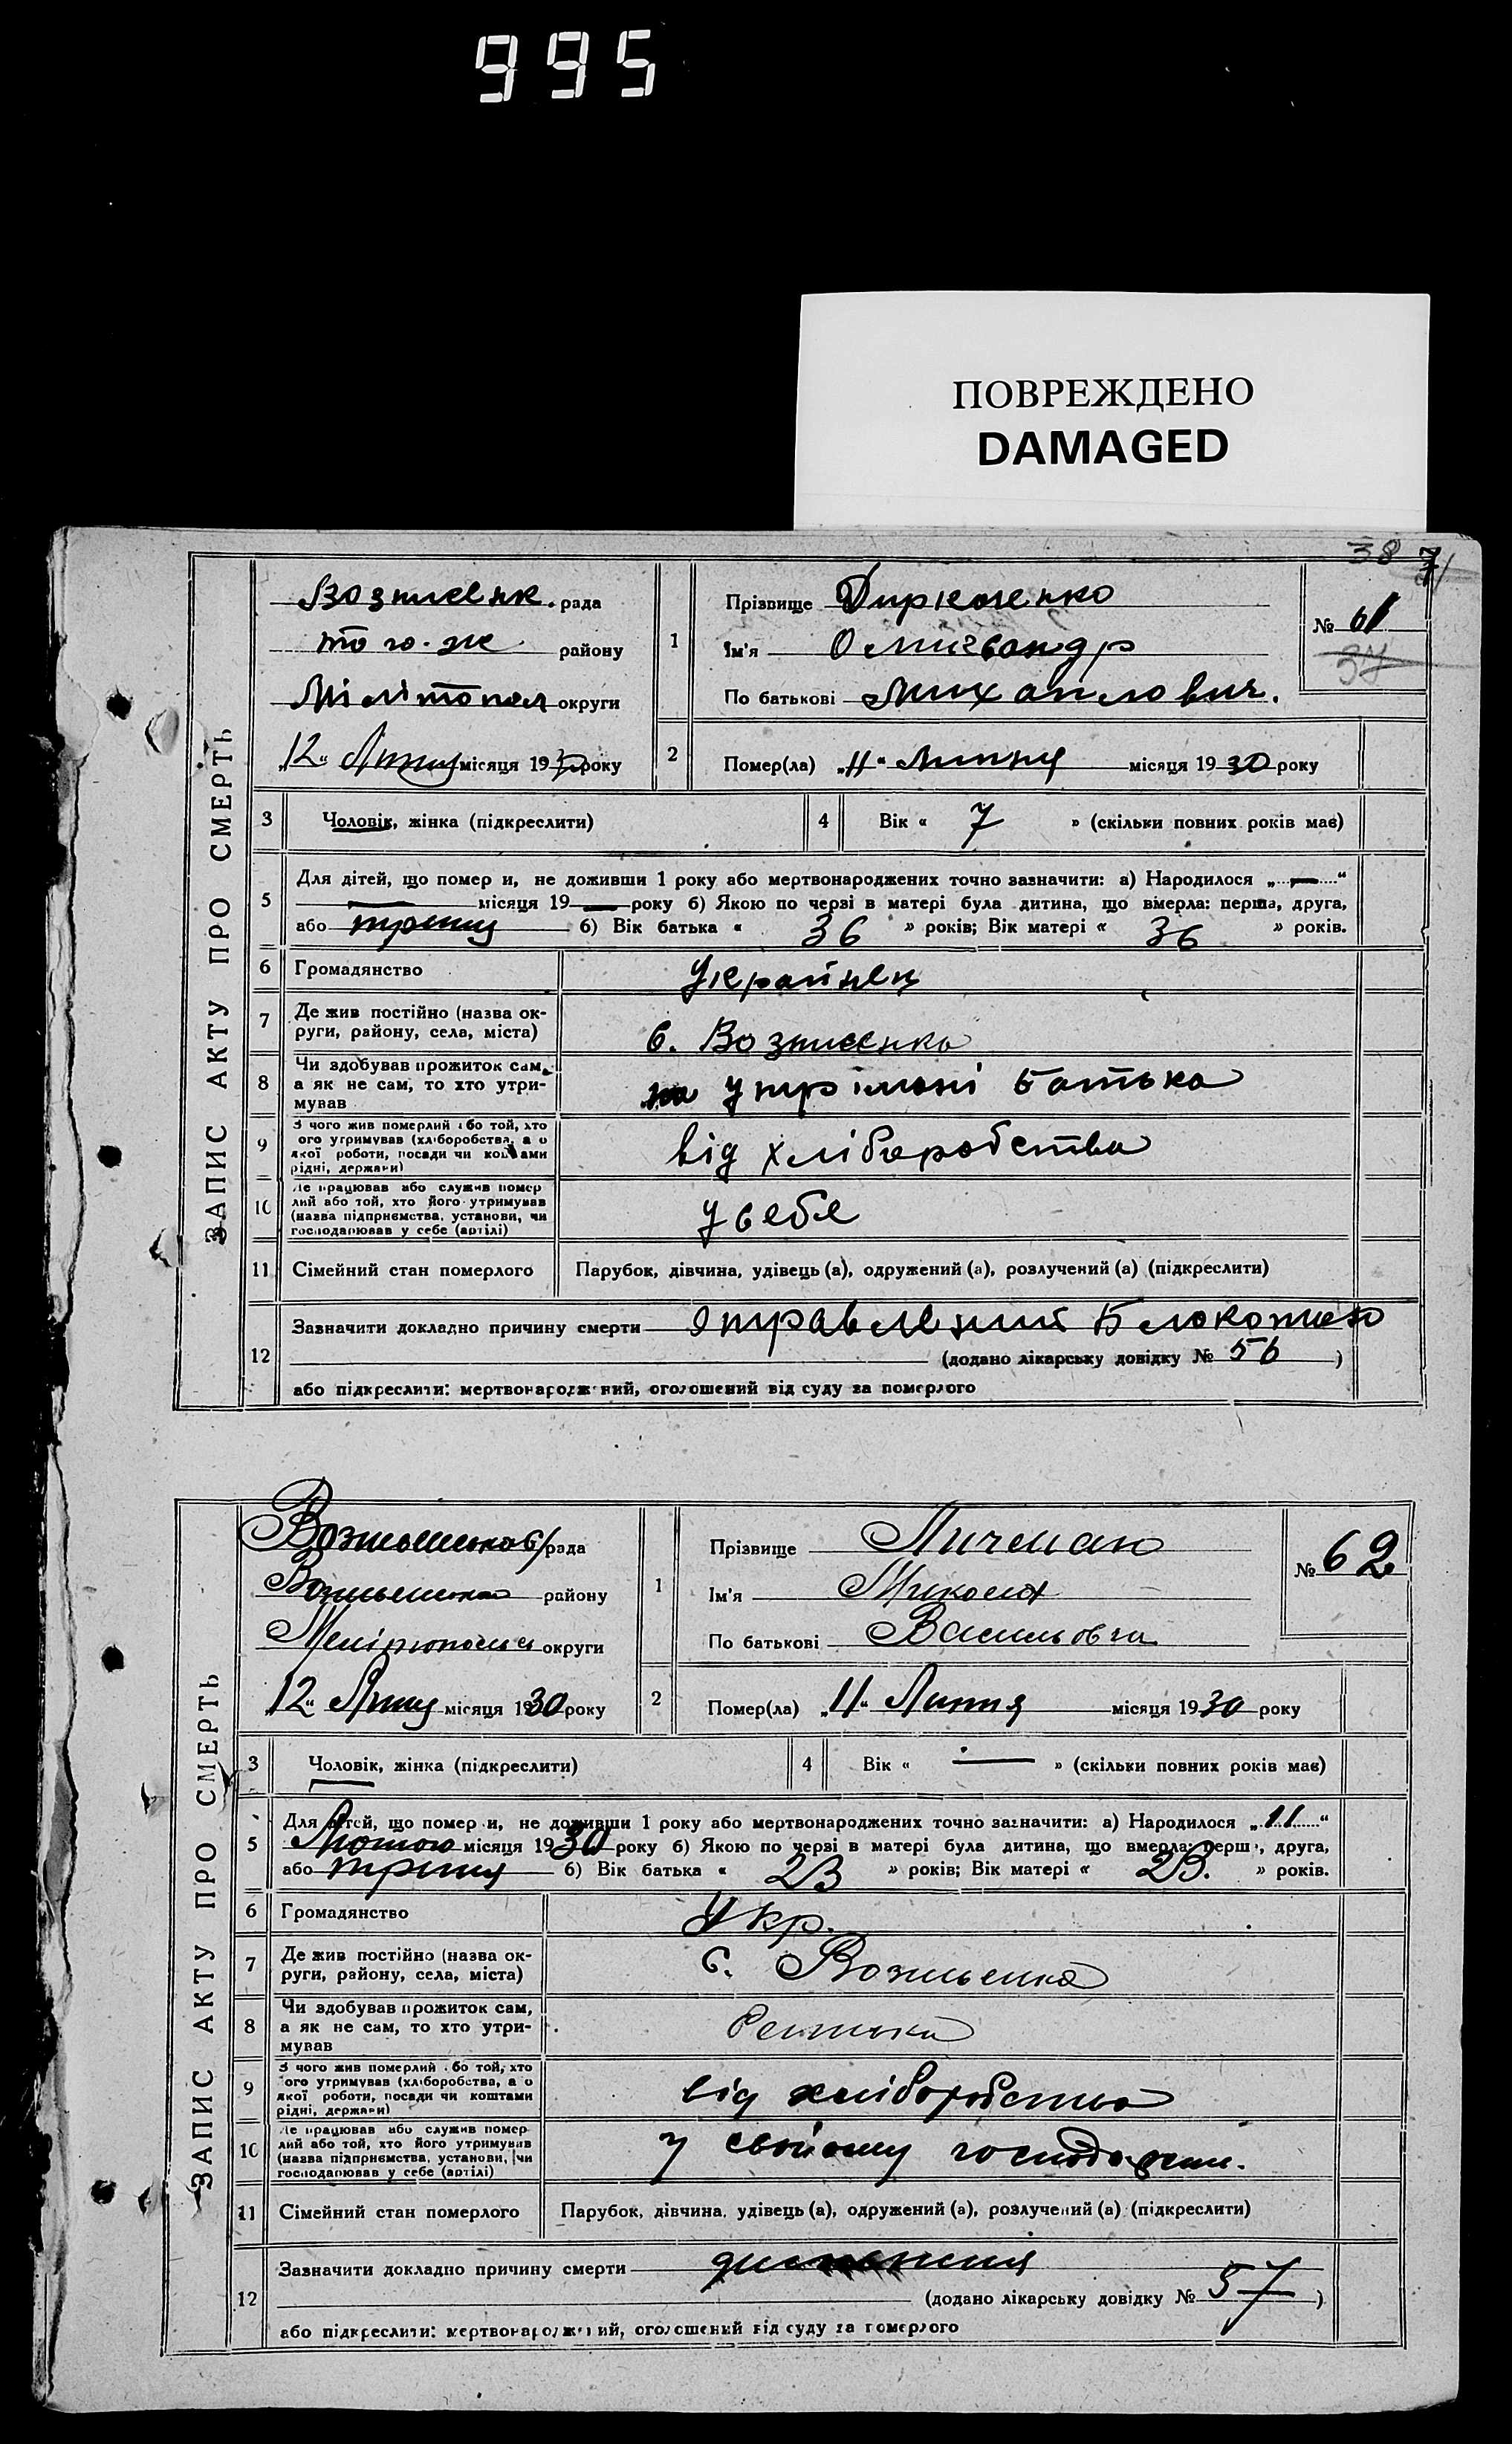 995
ПОВРЕЖДЕНО
DAMAGED
38
ЗАПИС АКТУ ПРО СМЕРТЬ
рада
того-ж району
округи
"12" Липня місяця 1930 року
1
Прізвище
Ім'я
По батькові Михаилович.
№ 61
37
2
Помер(ла) "11" Липня місяця 1930 року
3 Чоловік, жінка (підкреслити)
4 Вік « 7 » (скільки повних років має)
5
Для дітей, що помер и, не доживши 1 року або мертвонароджених точно зазначити: а) Народилося „ — “
— місяця 19 — року б) Якою по черзі в матері була дитина, що вмерла: перша, друга,
або третя б) Вік батька « 36 » років; Вік матері « 36 » років.
6 Громадянство Українец
7
Де жив постійно (назва ок-
руги, району, села, міста)
с. Вознисенка
8
Чи здобував прожиток сам,
а як не сам, то хто утри-
мував
на утрімані батька
9
З чого жив померлий або той, хто
ого утримував (хліборобства, з о
якої роботи, посади чи коштами
рідні, держави)
від хліборобства
10
Де працював або служив помер
лий або той, хто його утримував
(назва підприємства, установи, чи
господарював у себе (артілі)
у себе
11 Сімейний стан померлого Парубок, дівчина, удівець (а), одружений (а), розлучений (а) (підкреслити)
12
Зазначити докладно причину смерти
(додано лікарську довідку № 56 )
або підкреслити: мертвонароджений, оголошений від суду за померлого
ЗАПИС АКТУ ПРО СМЕРТЬ
рада
району
округи
"12" Липня місяця 1930 року
1
Прізвище
Ім'я Микола
По батькові
№ 62
2
Помер(ла) "11" Липня місяця 1930 року
3 Чоловік, жінка (підкреслити)
4 Вік « — » (скільки повних років має)
5
Для дітей, що помер и, не доживши 1 року або мертвонароджених точно зазначити: а) Народилося „ 11 “
Лютого місяця 1930 року б) Якою по черзі в матері була дитина, що вмерла: перш , друга,
або третя б) Вік батька « 23 » років; Вік матері « 23. » років.
6 Громадянство Укр.
7
Де жив постійно (назва ок-
руги, району, села, міста)
с.
8
Чи здобував прожиток сам,
а як не сам, то хто утри-
мував
9
З чого жив померлий або той, хто
ого утримував (хліборобства, з о
якої роботи, посади чи коштами
рідні, держави)
від хліборобства
10
Де працював або служив помер
лий або той, хто його утримував
(назва підприємства, установи, чи
господарював у себе (артілі)
у свойому
11 Сімейний стан померлого Парубок, дівчина, удівець (а), одружений (а), розлучений (а) (підкреслити)
12
Зазначити докладно причину смерти
(додано лікарську довідку № 57 )
або підкреслити: мертвонароджений, оголошений від суду за померлого